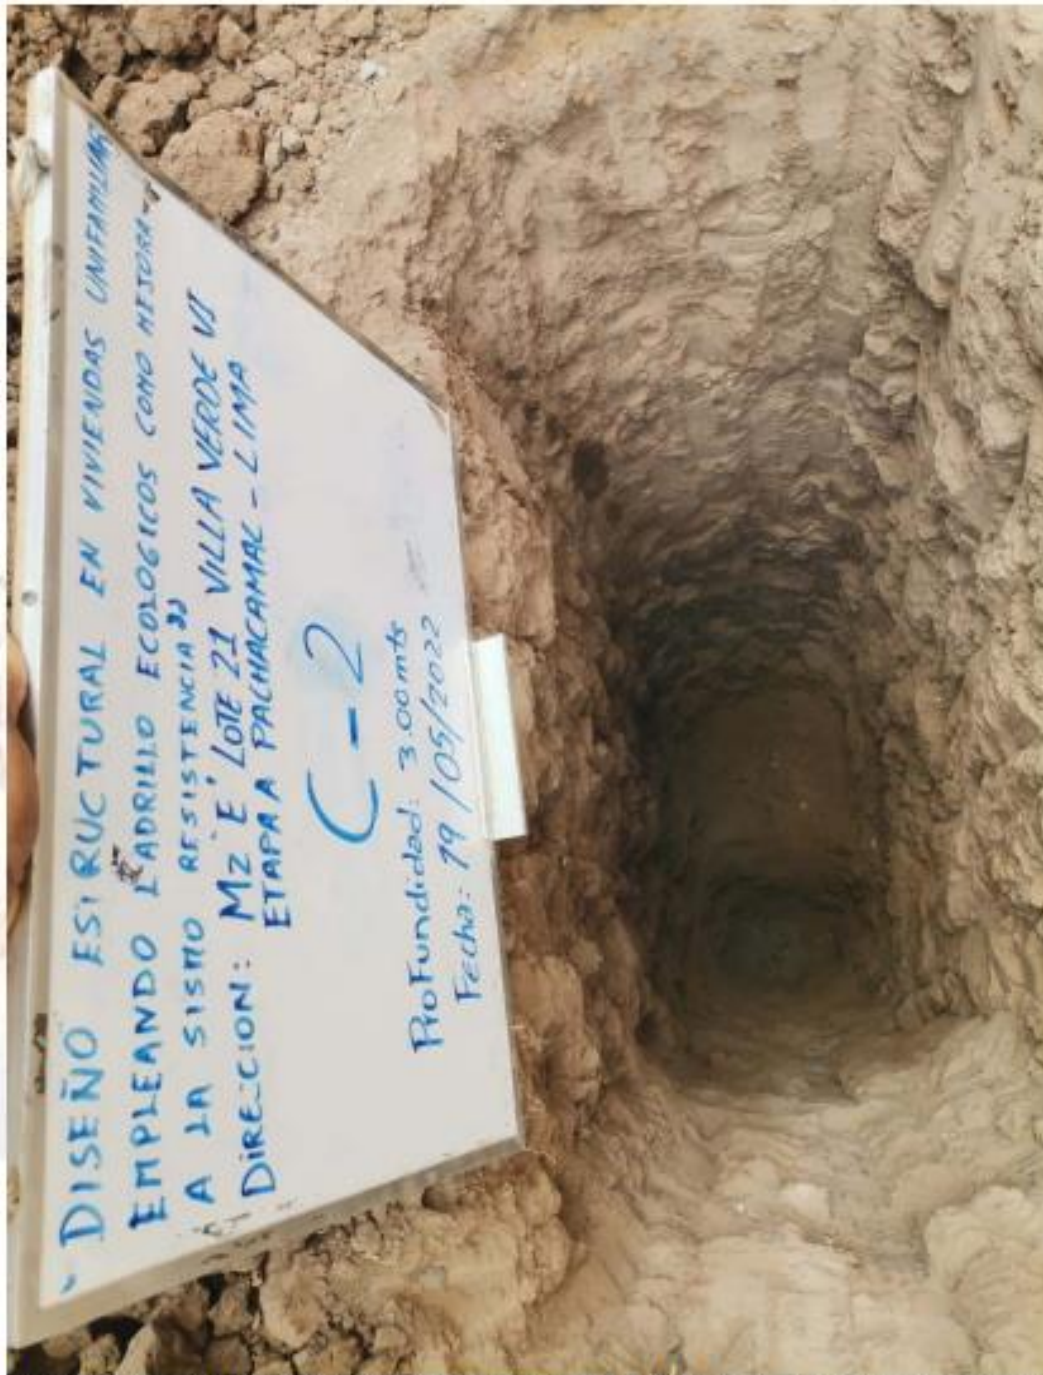 " DISEÑO ESTRUCTURAL EN VIVIENDAS UNIFAMILIARES
EMPLEANDO LADRILLO ECOLOGICOS COMO MEJORA
A LA SISMO RESISTENCIA"
DIRECCION: Mz E' LOTE 21 VILLA VERDE VI
ETAPA A PACHACAMAC - LIMA
C-2
ProFundidad: 3.00mts
Fecha: 19/05/2022